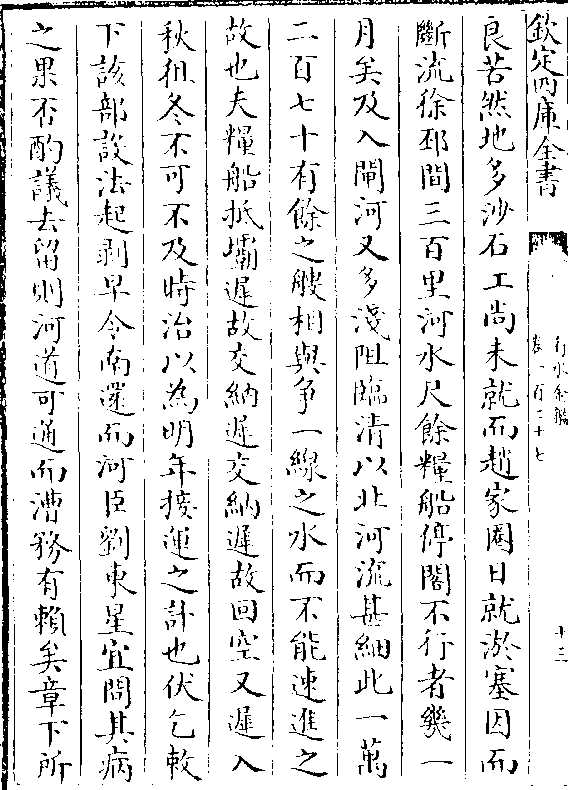 欽定四庫全書
行水金鑑
卷一百二十七
十三
良苦然地多沙石工尚未就而趙家圈日就淤塞因而
斷流徐邳間三百里河水尺餘糧船停閣不行者幾一
月矣及入閘河又多淺阻臨清以北河流甚細此一萬
二百七十有餘之艘相與爭一線之水而不能速進之
故也夫糧船抵壩遲故交納遲交納遲故回空又遲入
秋徂冬不可不及時治以為明年接運之計也伏乞敕
下該部設法起剥早令南還而河臣劉東星宜問其病
之果否酌議去留則河道可通而漕務有賴矣章下所